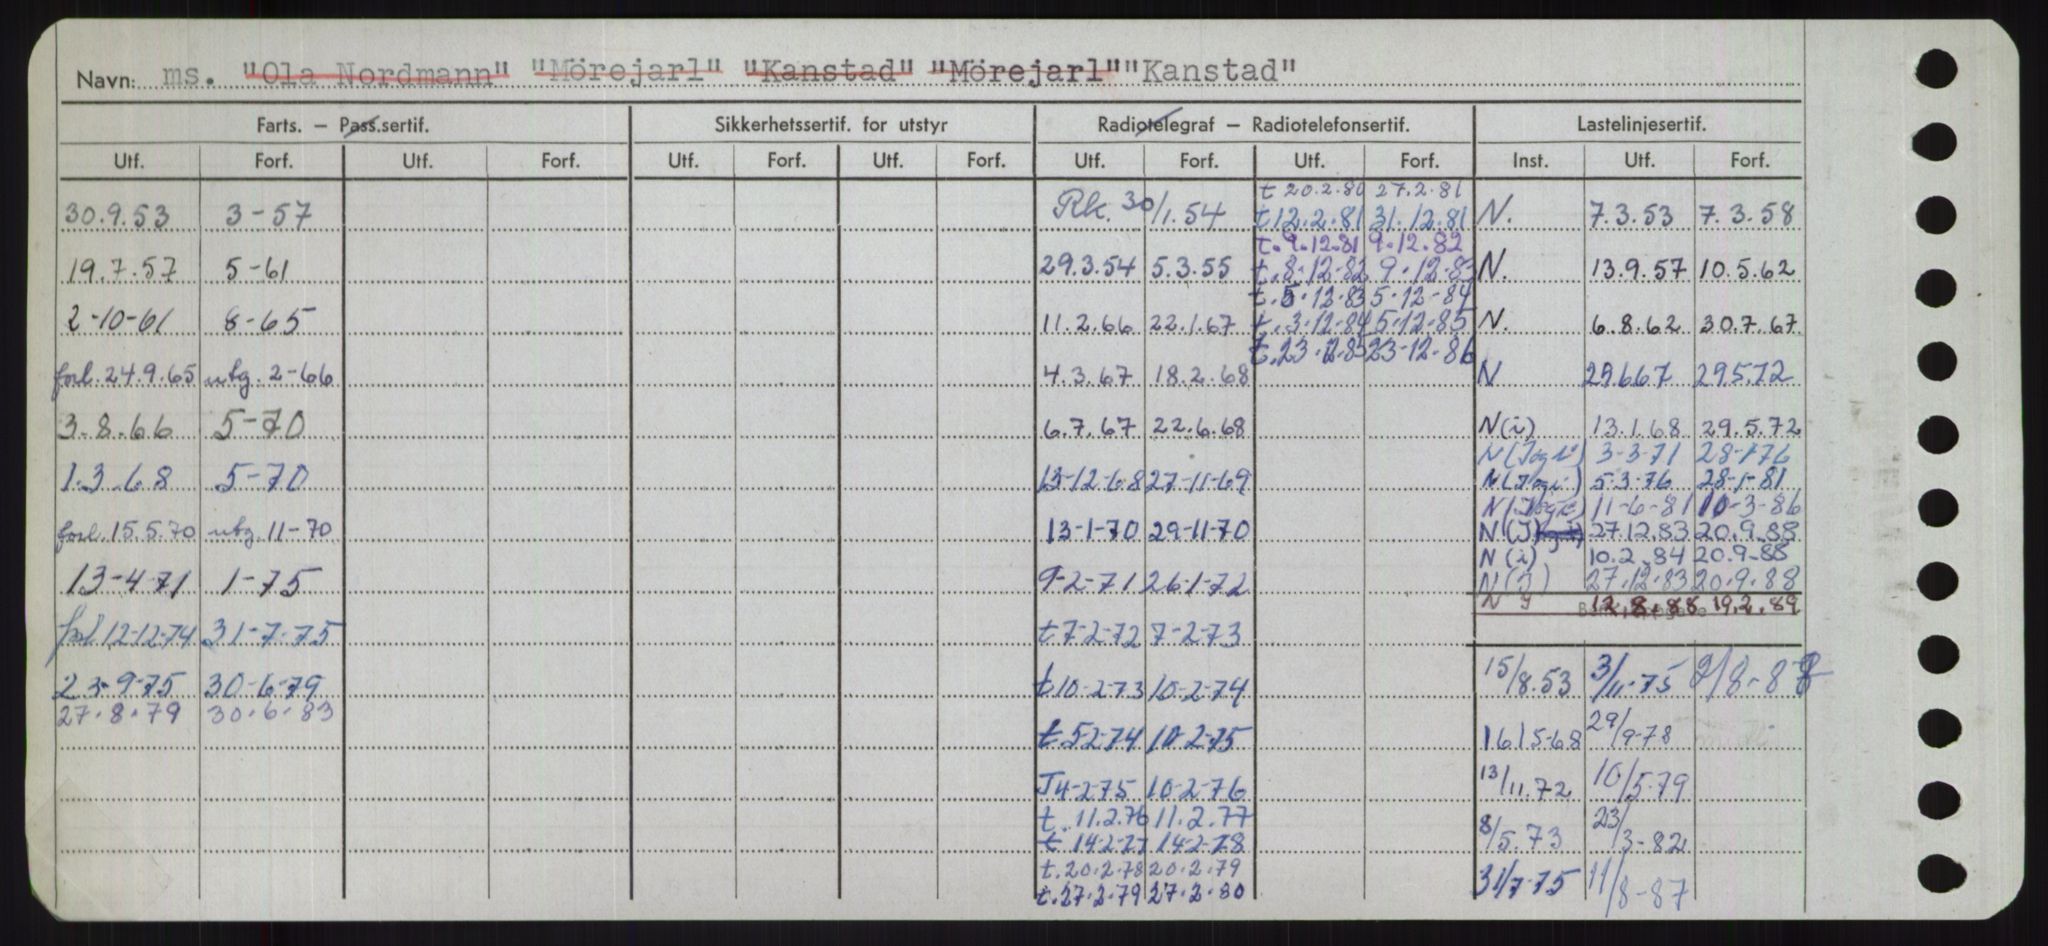 Navn: ms. "Ola Nordmann" "Mörejarl" "Kanstad" "Mörejarl" "Kanstad"
Farts. – Pass.sertif. Sikkerhetssertif. for utstyr Radiotelegraf – Radiotelefonsertif. Lastelinjesertif.
Utf. Forf. Utf. Forf. Utf. Forf. Utf. Forf. Utf. Forf. Utf. Forf. Inst. Utf. Forf.
30.9.53 3-57
19.7.57 5-61
2-10-61 8-65
forl. 24.9.65 utg. 2-66
3.8.66 5-70
1.3.68 5-70
forl. 15.5.70 utg. 11-70
13-4-71 1-75
forl. 12-12-74 31-7-75
23-9-75 30-6-79
27.8.79 30.6.83
Rk. 30/1.54
29.3.54 5.3.55
11.2.66 22.1.67
4.3.67 18.2.68
6.7.67 22.6.68
13-12-68 27-11-69
13-1-70 29-11-70
9-2-71 26-1-72
t 7-2-72 7-2-73
t 10-2-73 10-2-74
t 5-2-74 10-2-75
T 4-2-75 10-2-76
t. 11.2.76 11.2.77
t 14-2-77 14-2-78
t. 20.2.78 20.2.79
t. 27.2.79 27.2.80
t 20.2.80 27.2.81
t 12.2.81 31.12.81
t. 9.12.81 9.12.82
t. 8.12.82 9.12.83
t. 5.12.83 5-12-84
t. 3-12-84 5-12-85
t. 23-12-85 23-12-86
N. 7.3.53 7.3.58
N. 13.9.57 10.5.62
N. 6.8.62 30.7.67
N 29.6.67 29.5.72
N(i) 13.1.68 29.5.72
N(I og i) 3-3-71 28-1-76
N(I og i) 5-3-76 28-1-81
N(I og i) 11-6-81 10-3-86
N(I) 27.12.83 20.9.88
N(i) 10.2.84 20.9.88
N(I) 27.12.83 20.9.88
N 12.8.88 19.2.89
15/8.53 3/11-75 9/8-88
16/5-68 29/9-78
13/11.72 10/5-79
8/5.73 23/3-82
31/7-75 11/8-87